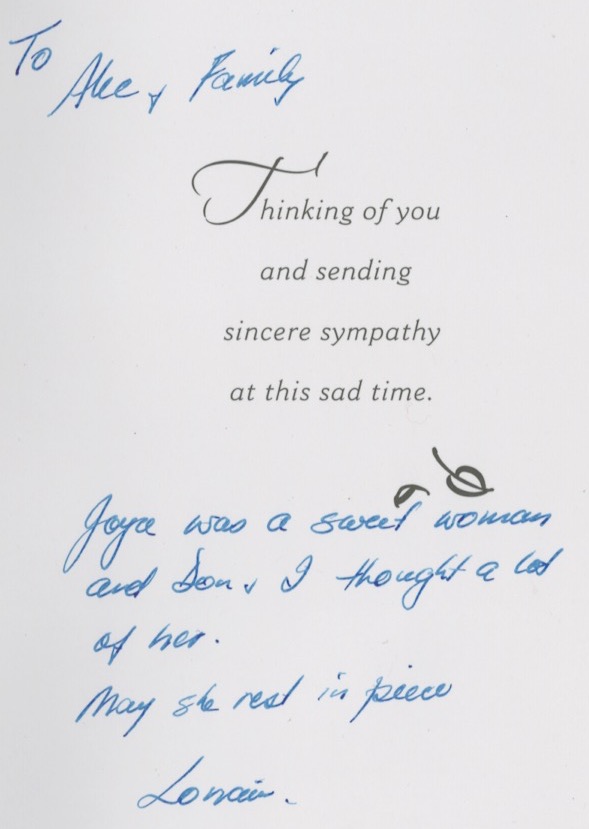 To
Alec + Family
Thinking of you
and sending
sincere sympathy
at this sad time.
Joyce was a sweet woman
and Don + I thought a lot
of her.
May she rest in piece
Lorrain.